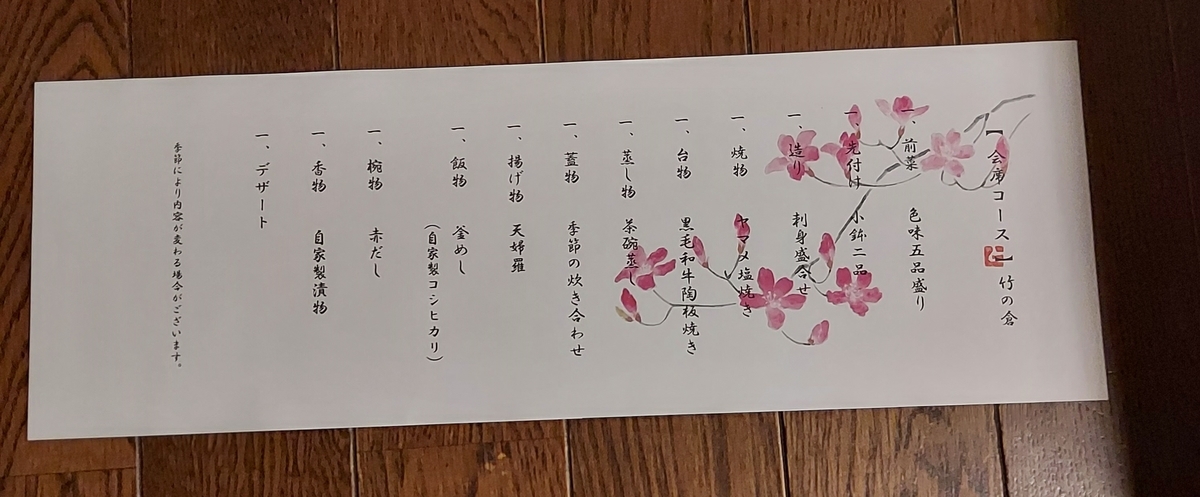 【会席コース】竹の倉
一、前菜　色味五品盛り
一、先付け　小鉢二品
一、造り　刺身盛合せ
一、焼物　ヤマメ塩焼き
一、台物　黒毛和牛陶板焼き
一、蒸し物　茶碗蒸し
一、蓋物　季節の炊き合わせ
一、揚げ物　天婦羅
一、飯物　釜めし
（自家製コシヒカリ）
一、椀物　赤だし
一、香物　自家製漬物
一、デザート
季節により内容が変わる場合がございます。